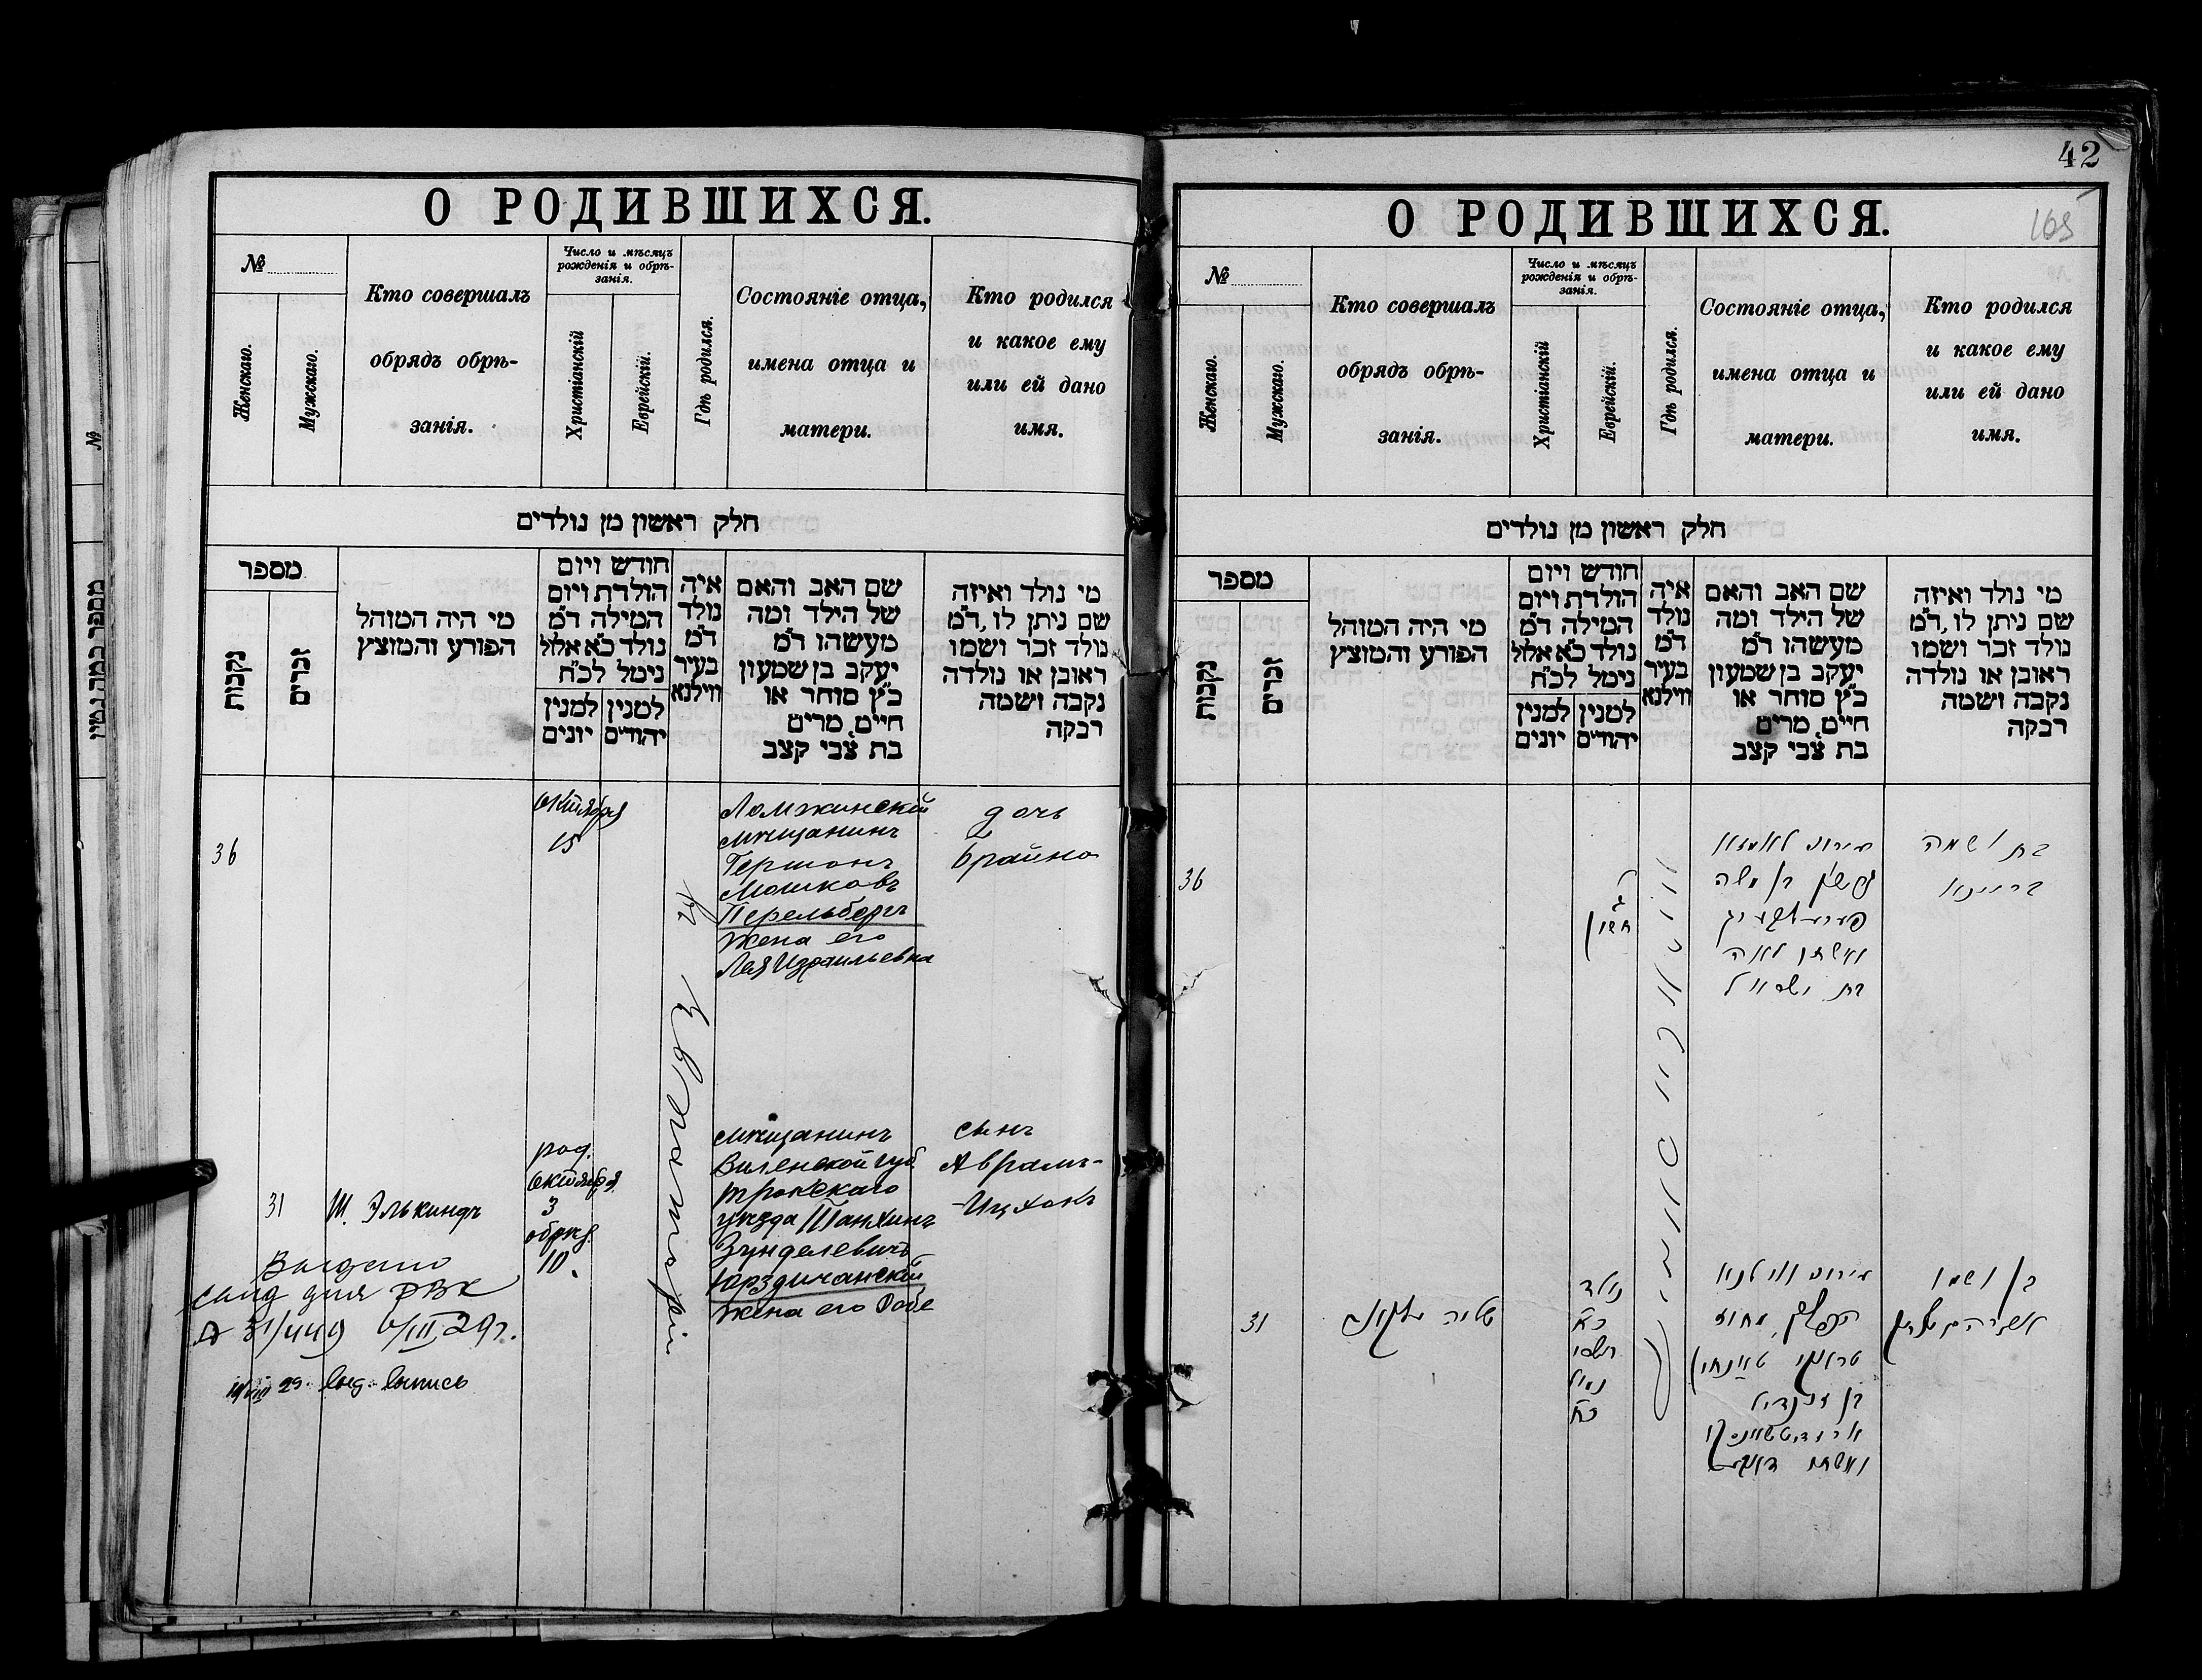 О РОДИВШИХСЯ.
№
Женскаго.
Мужскаго.
Кто совершалъ
обрядъ обрѣ-
занія.
Число и мѣсяцъ
рожденія и обрѣ-
занія.
Христіанскій
Еврейскій.
Гдѣ родился.
Состояніе отца,
имена отца и
матери.
Кто родился
и какое ему
или ей дано
имя.
חלק ראשון מן נולדים
מספר
נקבות
זכרים
מי היה המוהל
הפורע והמוצץ
חודש ויום
הולדת ויום
המילה ד"מ
נולד כ"א אלול
נימל לכ"ח
למנין יהודים
למנין יונים
איה
נולד
ד"מ
בעיר
ווילנא
שם האב והאם
של הילד ומה
מעשהו ד"מ
יעקב בן שמעון
כ"ץ סוחר או
חיים, מרים
בת צבי קצב
מי נולד ואיזה
שם ניתן לו, ד"מ
נולד זכר ושמו
ראובן או נולדה
נקבה ושמה
רבקה
36
Октября
15
Ломжинскій
мѣщанинъ
Гершонъ
Мошковъ
Перельбергъ
жена его
Лея Израильевна
дочь
Брайна
31
Ш. Элькиндъ
род.
Октября
3
обрѣз.
10.
мѣщанинъ
Виленской губ.
Трокскаго
уѣзда Танхинъ
Зунделевичъ
Юрздичанскій
жена его
сынъ
Аврамъ-
-Ицхокъ
Выдано
29 г.
29. выд. выпись
42
О РОДИВШИХСЯ.
165
№
Женскаго.
Мужскаго.
Кто совершалъ
обрядъ обрѣ-
занія.
Число и мѣсяцъ
рожденія и обрѣ-
занія.
Христіанскій
Еврейскій.
Гдѣ родился.
Состояніе отца,
имена отца и
матери.
Кто родился
и какое ему
или ей дано
имя.
חלק ראשון מן נולדים
מספר
נקבות
זכרים
מי היה המוהל
הפורע והמוצץ
חודש ויום
הולדת ויום
המילה ד"מ
נולד כ"א אלול
נימל לכ"ח
למנין יהודים
למנין יונים
איה
נולד
ד"מ
בעיר
ווילנא
שם האב והאם
של הילד ומה
מעשהו ד"מ
יעקב בן שמעון
כ"ץ סוחר או
חיים, מרים
בת צבי קצב
מי נולד ואיזה
שם ניתן לו, ד"מ
נולד זכר ושמו
ראובן או נולדה
נקבה ושמה
רבקה
36
חשון
מירוני לאמזא
גרשון בן משה
פערעלבערג
ואשתו לאה
בת ישראל
בת ושמה
בריינא
31
נולד
תשרי
נמול
מירוני ווילנא
טראקי טאנחין
בן זונדיל
ואשתו
בן ושמו